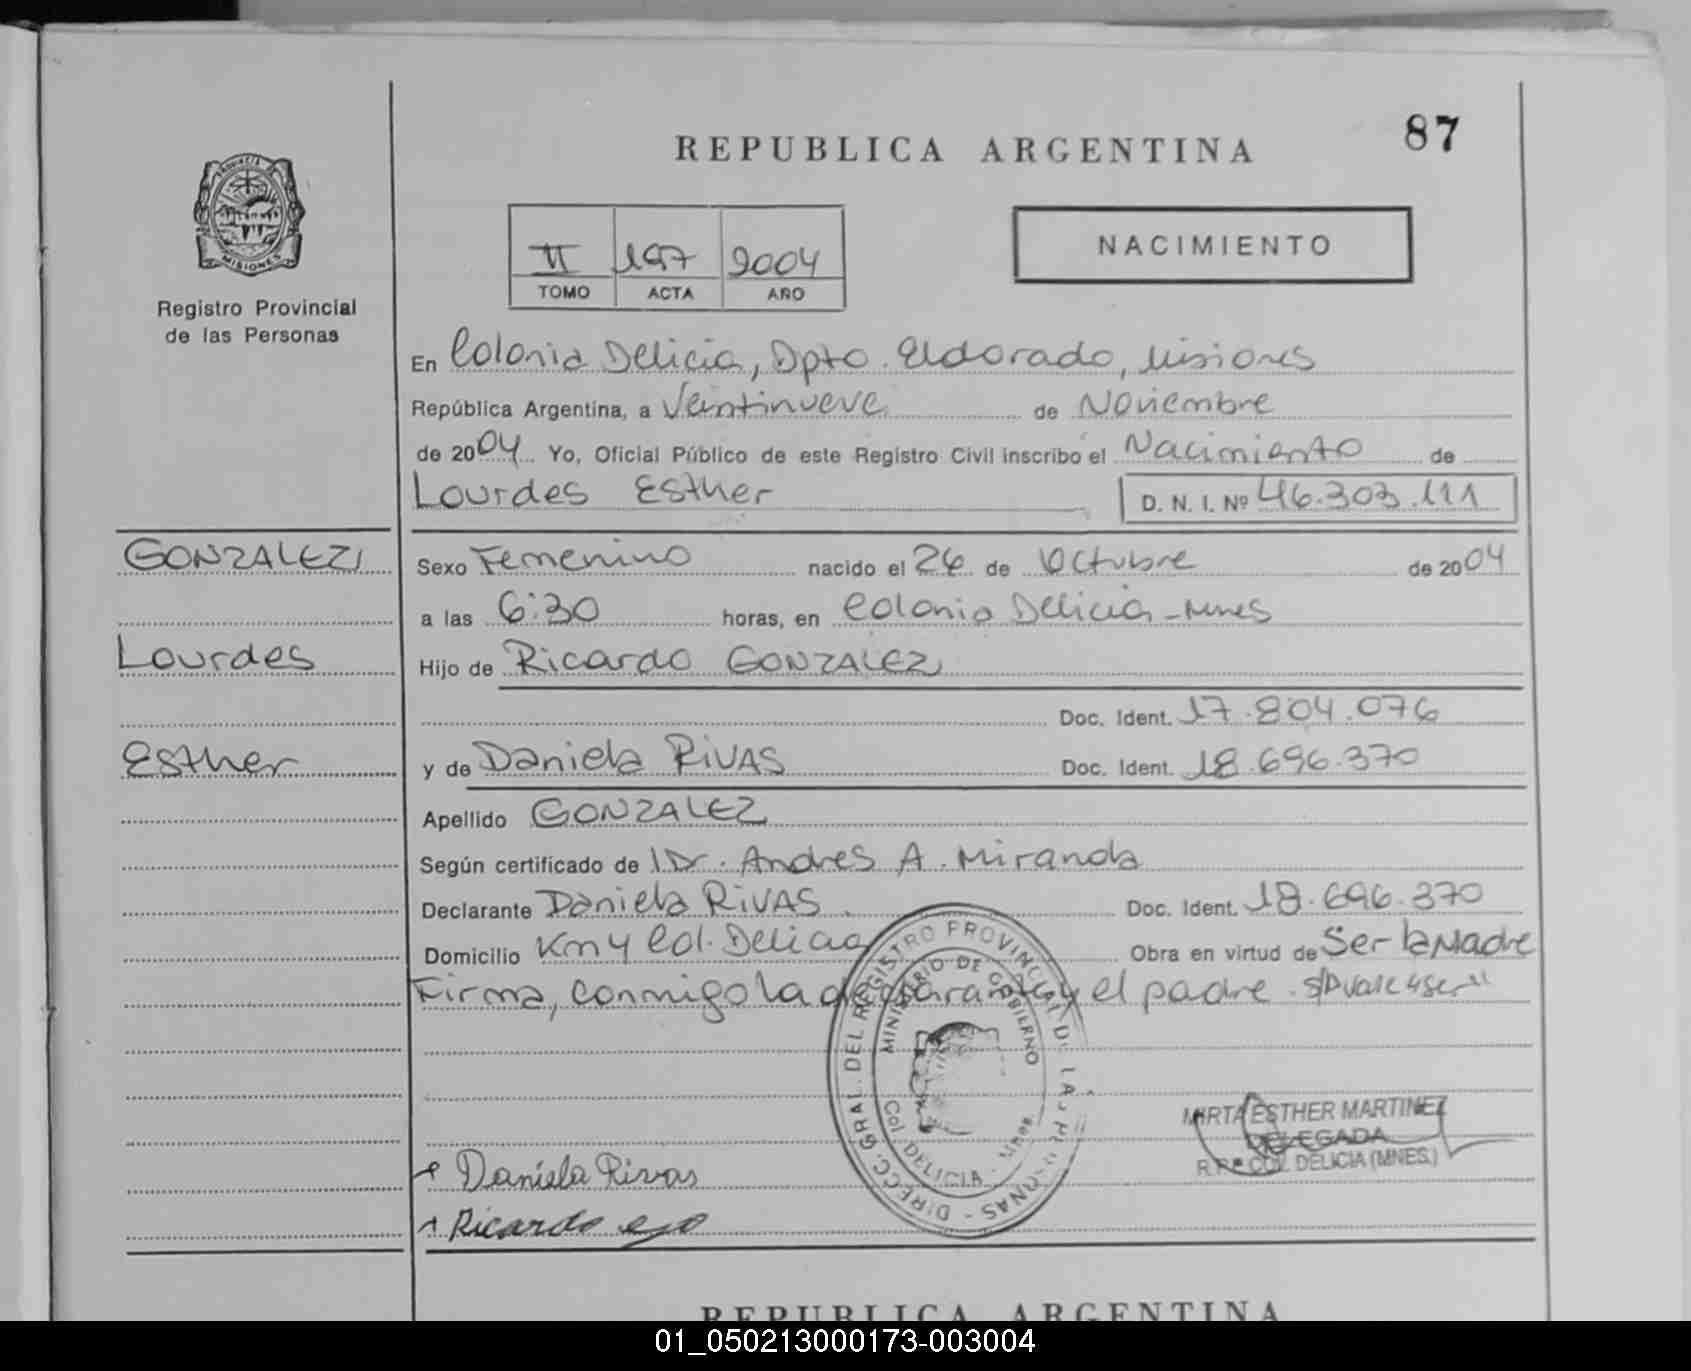 87
REPUBLICA ARGENTINA
PROVINCIA
MISIONES
Registro Provincial
de las Personas
II 197 2004
TOMO ACTA AÑO
NACIMIENTO
En Colonia Delicia, Dpto. Eldorado, Misiones
República Argentina, a Veintinueve de Noviembre
de 2004 Yo, Oficial Público de este Registro Civil inscribo el Nacimiento de
Lourdes Esther D. N. I. Nº 46.303.111
GONZALEZ
Lourdes
Esther
Sexo Femenino nacido el 26 de Octubre de 2004
a las 6:30 horas, en Colonia Delicia-Mnes
Hijo de Ricardo GONZALEZ
Doc. Ident. 17.804.076
y de Daniela RIVAS Doc. Ident. 18.696.370
Apellido GONZALEZ
Según certificado de Dr. Andres A. Miranda
Declarante Daniela RIVAS Doc. Ident. 18.696.370
Domicilio Km 4 Col. Delicia Obra en virtud de Ser la Madre
Firma, conmigo la declarante y el padre.
DIRECC. GRAL. DEL REGISTRO PROVINCIAL DE LAS PERSONAS -
MINISTERIO DE GOBIERNO
Col. DELICIA - Mnes
MIRTA ESTHER MARTINEZ
DELEGADA
COL. DELICIA (MNES.)
Daniela Rivas
Ricardo
REPUBLICA ARGENTINA
01_050213000173-003004